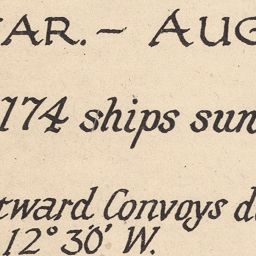 AR. – AUG
174 ships sun
tward Convoys d
12° 30' W.